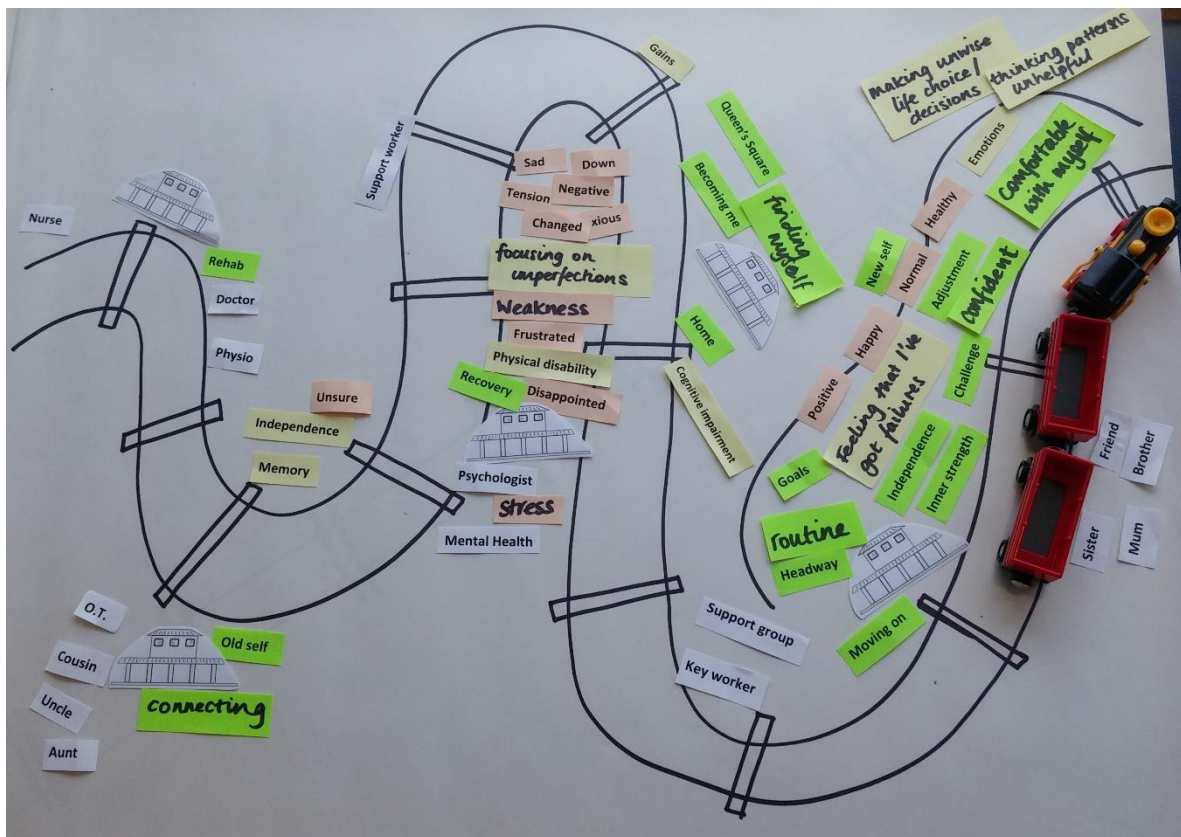 Nurse
Rehab
Doctor
Physio
Unsure
Independence
Memory
O.T.
Cousin
Uncle
Aunt
Old self
connecting
Support worker
Gains
Sad
Down
Tension
Negative
Changed
xious
focusing on
imperfections
Weakness
Frustrated
Physical disability
Recovery
Disappointed
Psychologist
Stress
Mental Health
Queen's Square
Becoming me
finding
myself
Home
Cognitive impairment
Support group
Key worker
making unwise
life choice/
decisions
thinking patterns
unhelpful
Emotions
comfortable
with myself
Healthy
New self
Normal
Adjustment
Confident
Happy
Positive
Feeling that I've
got failures
Challenge
Goals
Independence
Inner strength
routine
Headway
Moving on
Friend
Brother
Sister
Mum